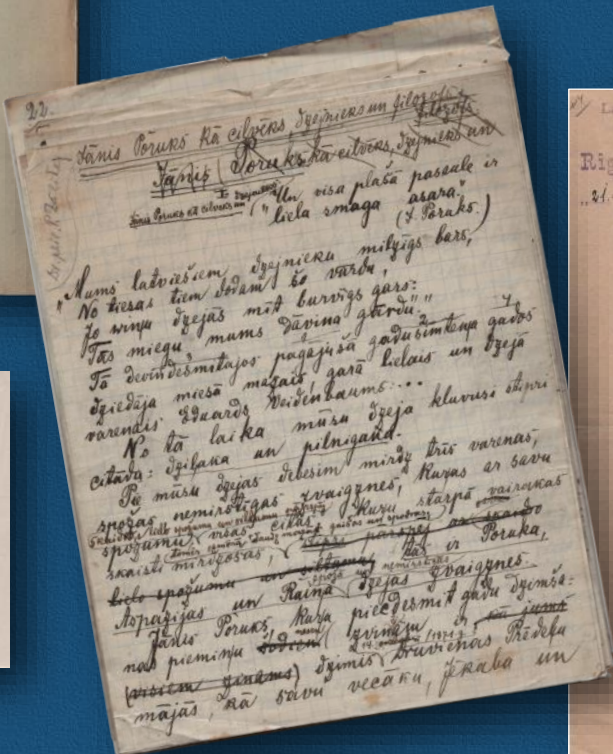 22.
Jānis Poruks kā cilvēks, dzejnieks un filozofs.
Jānis Poruks kā cilvēks, dzejnieks un
filozofs.
Jānis Poruks kā cilvēks un
"Un visa plašā pasaule ir
liela smaga asara."
(J. Poruks.)
"Mums latviešiem dzejnieku milzīgs bars,
No tiesas tiem dodam šo vārdu,
Jo viņu dzejās mīt burvīgs gars:
Tas miegu mums dāvina gārdu",
Tā deviņdesmitajos pagājušā gadusimteņa gados
dziedāja miesā mazais, garā lielais un dzejā
varenais Eduards Veidenbaums...
No tā laika mūsu dzeja kļuvusi stipri
citāda: dziļāka un pilnīgāka.
Pie mūsu dzejas debesīm mirdz trīs varenas,
spožas nemirstīgas zvaigznes, kuras ar savu
spožumu visas citas, kuru starpā vairākas
skaisti mirdzošas,
lielo spožumu un siltumu, tās ir Poruka,
Aspazijas un Raiņa dzejas zvaigznes.
Jānis Poruks, kura piecdesmit gadu dzimša-
nas piemiņu šodien svinam,
(visiem zināms) dzimis Druvienas Prēdeļu
mājās, kā savu vecāku, Jēkaba un
Rīg
"21.